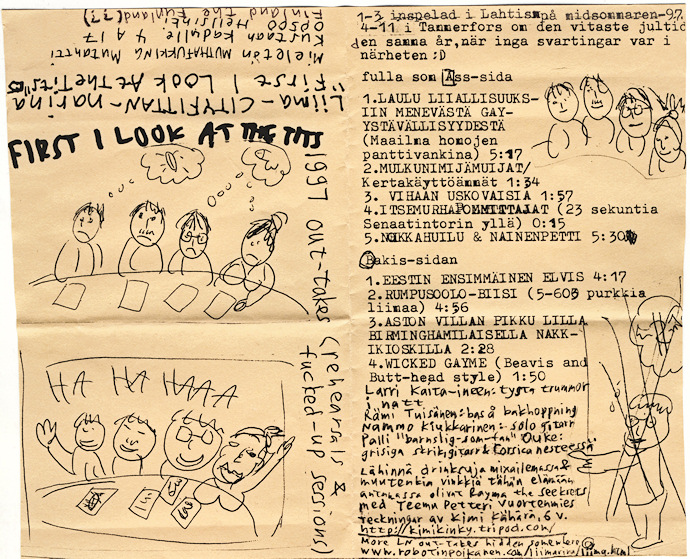 Liima-CITYFITTAN-narina
"First I Look At The Tits"
Mieletön MUTHAFUKKING MUTANTTI
Kustaan Kadulle 4 A 17
00500 Helsinki
Finland (The Fynland??)
FIRST I LOOK AT THE TITS
1997 out-takes (rehearsals &
fucked-up sessions)
HA HA HAAA
1-3 inspelad i Lahtis på midsommaren-97.
4-11 i Tammerfors om den vitaste jultid
den samma år, när inga svartingar var i
närheten ;D
fulla som Ass-sida
1.LAULU LIIALLISUUKS-
IIN MENEVÄSTÄ GAY-
YSTÄVÄLLISYYDESTÄ
(Maailma homojen
panttivankina) 5:17
2.MULKUNIMIJÄMUIJAT/
Kertakäyttöämmät 1:34
3. VIHAAN USKOVAISIA 1:57
4.ITSEMURHAPOMMITTAJAT (23 sekuntia
Senaatintorin yllä) 0:15
5.NOKKAHUILU & NAINENPETTI 5:30
Bakis-sidan
1.EESTIN ENSIMMÄINEN ELVIS 4:17
2.RUMPUSOOLO-BIISI (5-603 purkkia
liimaa) 4:56
3.ASTON VILLAN PIKKU LILLA
BIRMINGHAMILAISELLA NAKK-
IKIOSKILLA 2:28
4.WICKED GAYME (Beavis and
Butt-head style) 1:50
Larri Kaita-ineen: tysta trummor
i natt
Rämi Tuisänen: bas å bakhoppning
Nammo Klukkarinen: solo gitarr
Palli "barnslig-som-fan" Ouke:
grisiga skrikgitarr & Corsica nesteessä
Lähinnä drinksuja mixailemassa &
muutenkin vinkkiä tähän elämään
antamassa olivat Rayma the seekrets
med Teemu Petteri Vuortenmies
teckningar av Kimi Kähärä, 6 v.
http://kimikinky.tripod.com/
More LN out-takes hidden somewhere @
www.robotinpoikanen.com/liimarina/liima.html